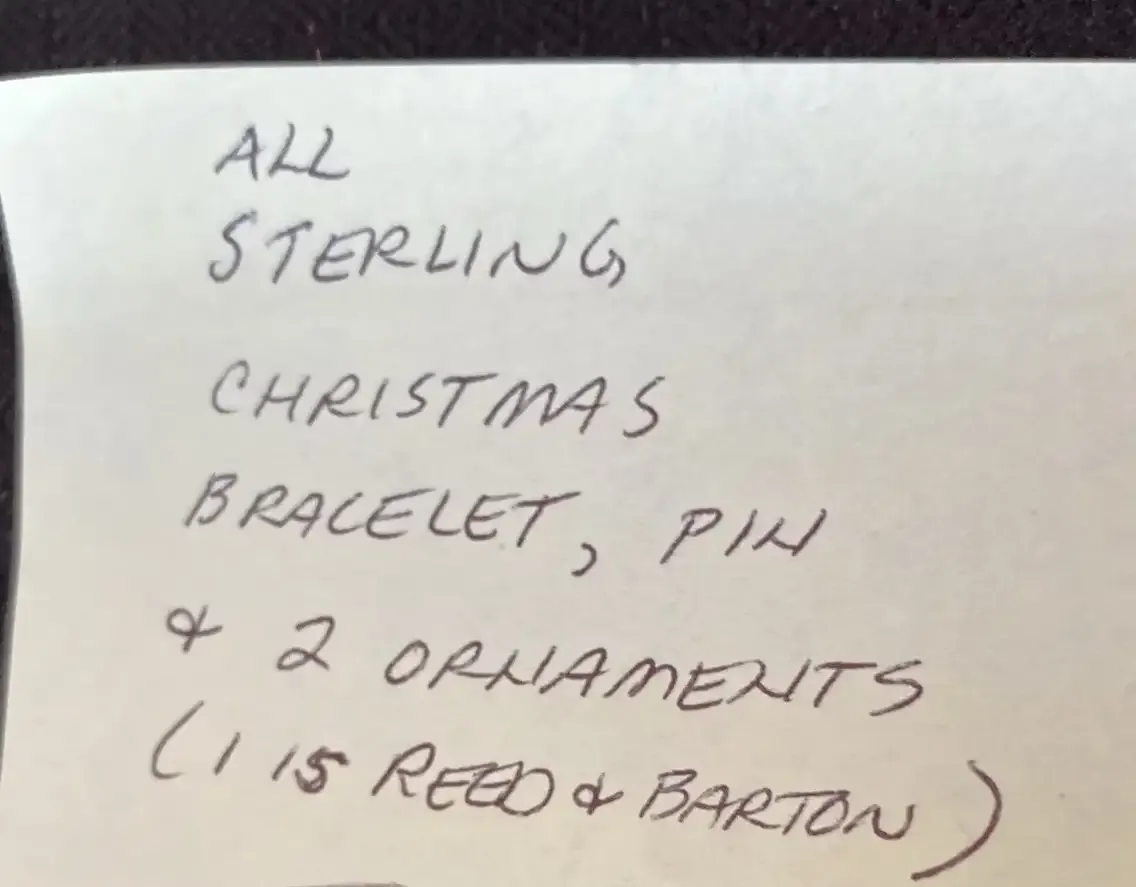 ALL
STERLING
CHRISTMAS
BRACELET, PIN
& 2 ORNAMENTS
(1 IS REED & BARTON)